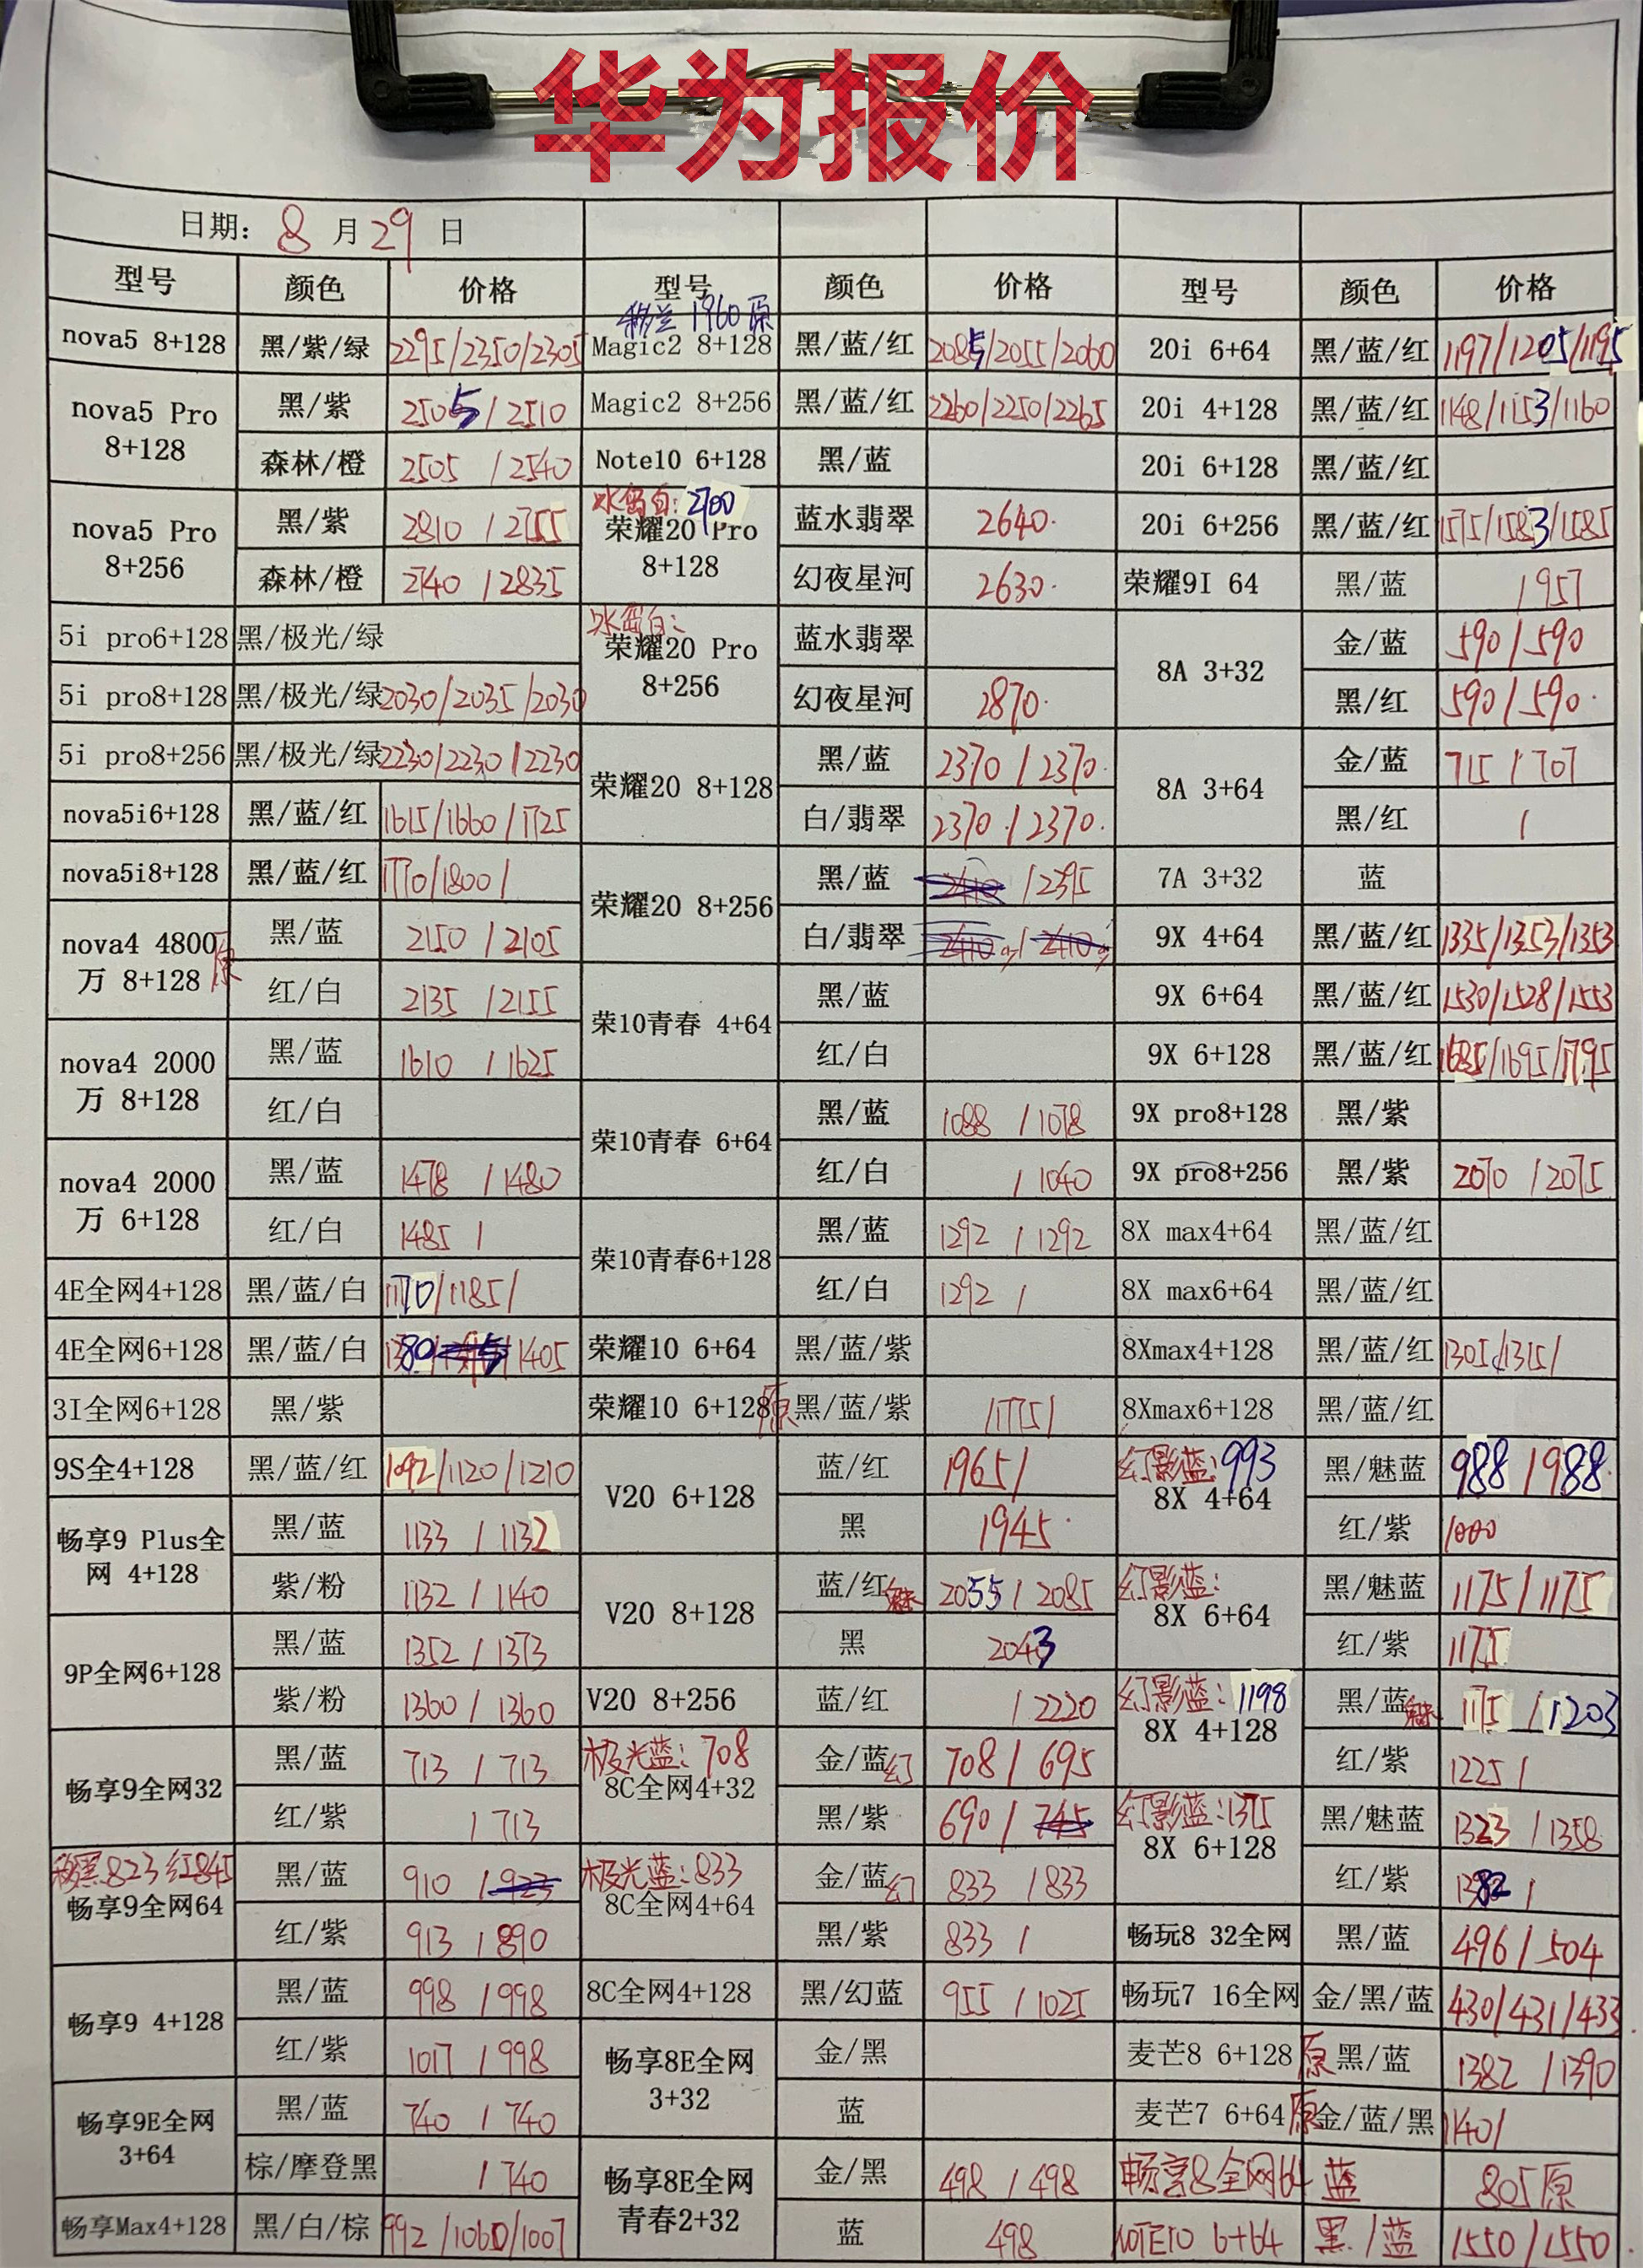 华为报价
日期: 8 月 29 日
型号 颜色 价格 型号 颜色 价格 型号 颜色 价格
移兰 1960 原
nova5 8+128 黑/紫/绿 2295/2350/2305 Magic2 8+128 黑/蓝/红 2085/2055/2060 20i 6+64 黑/蓝/红 1197/1205/1195
nova5 Pro 8+128 黑/紫 2505/2510 Magic2 8+256 黑/蓝/红 2260/2250/2265 20i 4+128 黑/蓝/红 1148/1153/1160
森林/橙 2505/2540 Note10 6+128 黑/蓝 20i 6+128 黑/蓝/红
nova5 Pro 8+256 黑/紫 2810/2755 冰岛白:2700 荣耀20 Pro 8+128 蓝水翡翠 2640 20i 6+256 黑/蓝/红 1575/1583/1585
森林/橙 2740/2835 幻夜星河 2630 荣耀9I 64 黑/蓝 /957
5i pro6+128 黑/极光/绿 冰岛白: 荣耀20 Pro 8+256 蓝水翡翠 8A 3+32 金/蓝 590/590
5i pro8+128 黑/极光/绿 2030/2035/2030 幻夜星河 2870 黑/红 590/590
5i pro8+256 黑/极光/绿 2230/2230/2230 荣耀20 8+128 黑/蓝 2370/2370 8A 3+64 金/蓝 715/707
nova5i6+128 黑/蓝/红 1615/1660/1725 白/翡翠 2370/2370 黑/红 /
nova5i8+128 黑/蓝/红 1770/1800/ 荣耀20 8+256 黑/蓝 /2395 7A 3+32 蓝
nova4 4800万 8+128 原 黑/蓝 2150/2105 白/翡翠 9X 4+64 黑/蓝/红 1335/1353/1353
红/白 2135/2155 荣10青春 4+64 黑/蓝 9X 6+64 黑/蓝/红 1530/1528/1553
nova4 2000万 8+128 黑/蓝 1610/1625 红/白 9X 6+128 黑/蓝/红 1685/1695/1795
红/白 荣10青春 6+64 黑/蓝 1088/1078 9X pro8+128 黑/紫
nova4 2000万 6+128 黑/蓝 1478/1480 红/白 /1040 9X pro8+256 黑/紫 2070/2075
红/白 1485/ 荣10青春6+128 黑/蓝 1292/1292 8X max4+64 黑/蓝/红
4E全网4+128 黑/蓝/白 1170/1185/ 红/白 1292/ 8X max6+64 黑/蓝/红
4E全网6+128 黑/蓝/白 1380/ /1405 荣耀10 6+64 黑/蓝/紫 8Xmax4+128 黑/蓝/红 1305/1315/
3I全网6+128 黑/紫 荣耀10 6+128 原 黑/蓝/紫 /1775/ 8Xmax6+128 黑/蓝/红
9S全4+128 黑/蓝/红 1092/1120/1210 V20 6+128 蓝/红 1965/ 幻影蓝:993 8X 4+64 黑/魅蓝 988/988
畅享9 Plus全网 4+128 黑/蓝 1133/1132 黑 1945 红/紫 1000
紫/粉 1132/1140 V20 8+128 蓝/红 魅 2055/2085 幻影蓝: 8X 6+64 黑/魅蓝 1175/1175
9P全网6+128 黑/蓝 1352/1373 黑 2043 红/紫 1175
紫/粉 1360/1360 V20 8+256 蓝/红 /2220 幻影蓝:1198 8X 4+128 黑/蓝 魅 1175/1203
畅享9全网32 黑/蓝 713/713 极光蓝:708 8C全网4+32 金/蓝 幻 708/695 红/紫 1225/
红/紫 /713 黑/紫 690/745 幻影蓝:1375 8X 6+128 黑/魅蓝 1323/1358
移黑823 红845 畅享9全网64 黑/蓝 910/923 极光蓝:833 8C全网4+64 金/蓝 幻 833/833 红/紫 1382/
红/紫 913/890 黑/紫 833/ 畅玩8 32全网 黑/蓝 496/504
畅享9 4+128 黑/蓝 998/998 8C全网4+128 黑/幻蓝 955/1025 畅玩7 16全网 金/黑/蓝 430/431/433
红/紫 1017/998 畅享8E全网 3+32 金/黑 麦芒8 6+128 原 黑/蓝 1382/1390
畅享9E全网 3+64 黑/蓝 740/740 蓝 麦芒7 6+64 原 金/蓝/黑 1140/
棕/摩登黑 /740 畅享8E全网青春2+32 金/黑 498/498 畅享8全网64 蓝 805原
畅享Max4+128 黑/白/棕 992/1060/1007 蓝 498 NOTE10 6+64 黑/蓝 1550/1550